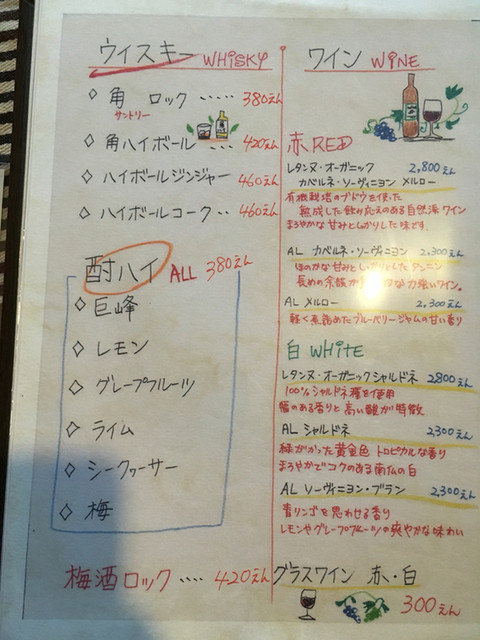 ウイスキー WHiSKY
◇ 角 ロック ····· 380えん
サントリー
◇ 角ハイボール 420えん
◇ ハイボールジンジャー 460えん
◇ ハイボールコーク ·· 460えん
酎ハイ ALL 380えん
◇ 巨峰
◇ レモン
◇ グレープフルーツ
◇ ライム
◇ シークヮーサー
◇ 梅
梅酒ロック ···· 420えん
ワイン WiNE
赤 RED
レタンヌ・オーガニック 2,800えん
カベルネ・ソーヴィニヨン メルロー
有機栽培のブドウを使った
熟成した飲み応えのある自然派ワイン
まろやかな甘みとしっかりした味です。
AL カベルネ・ソーヴィニヨン 2,300えん
ほのかな甘みとしっかりとしたタンニン
長めの余韻が 力強いワイン。
AL メルロー 2,300えん
軽く煮詰めたブルーベリージャムの甘い香り
白 WHiTE
レタンヌ・オーガニックシャルドネ 2800えん
100%シャルドネ種を使用
幅のある香りと高い酸が特徴
AL シャルドネ 2300えん
緑がかった黄金色 トロピカルな香り
まろやかでコクのある南仏の白
AL ソーヴィニヨン・ブラン 2,300えん
青リンゴを思わせる香り
レモンやグレープフルーツの爽やかな味わい
グラスワイン 赤・白
300えん